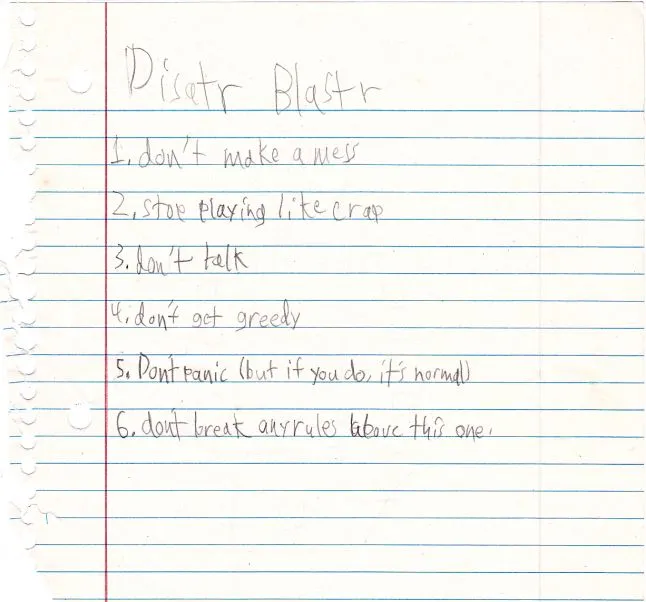 Disatr Blastr
1. don't make a mess
2. stop playing like crap
3. don't talk
4. don't get greedy
5. Don't panic (but if you do, it's normal)
6. don't break any rules above this one.